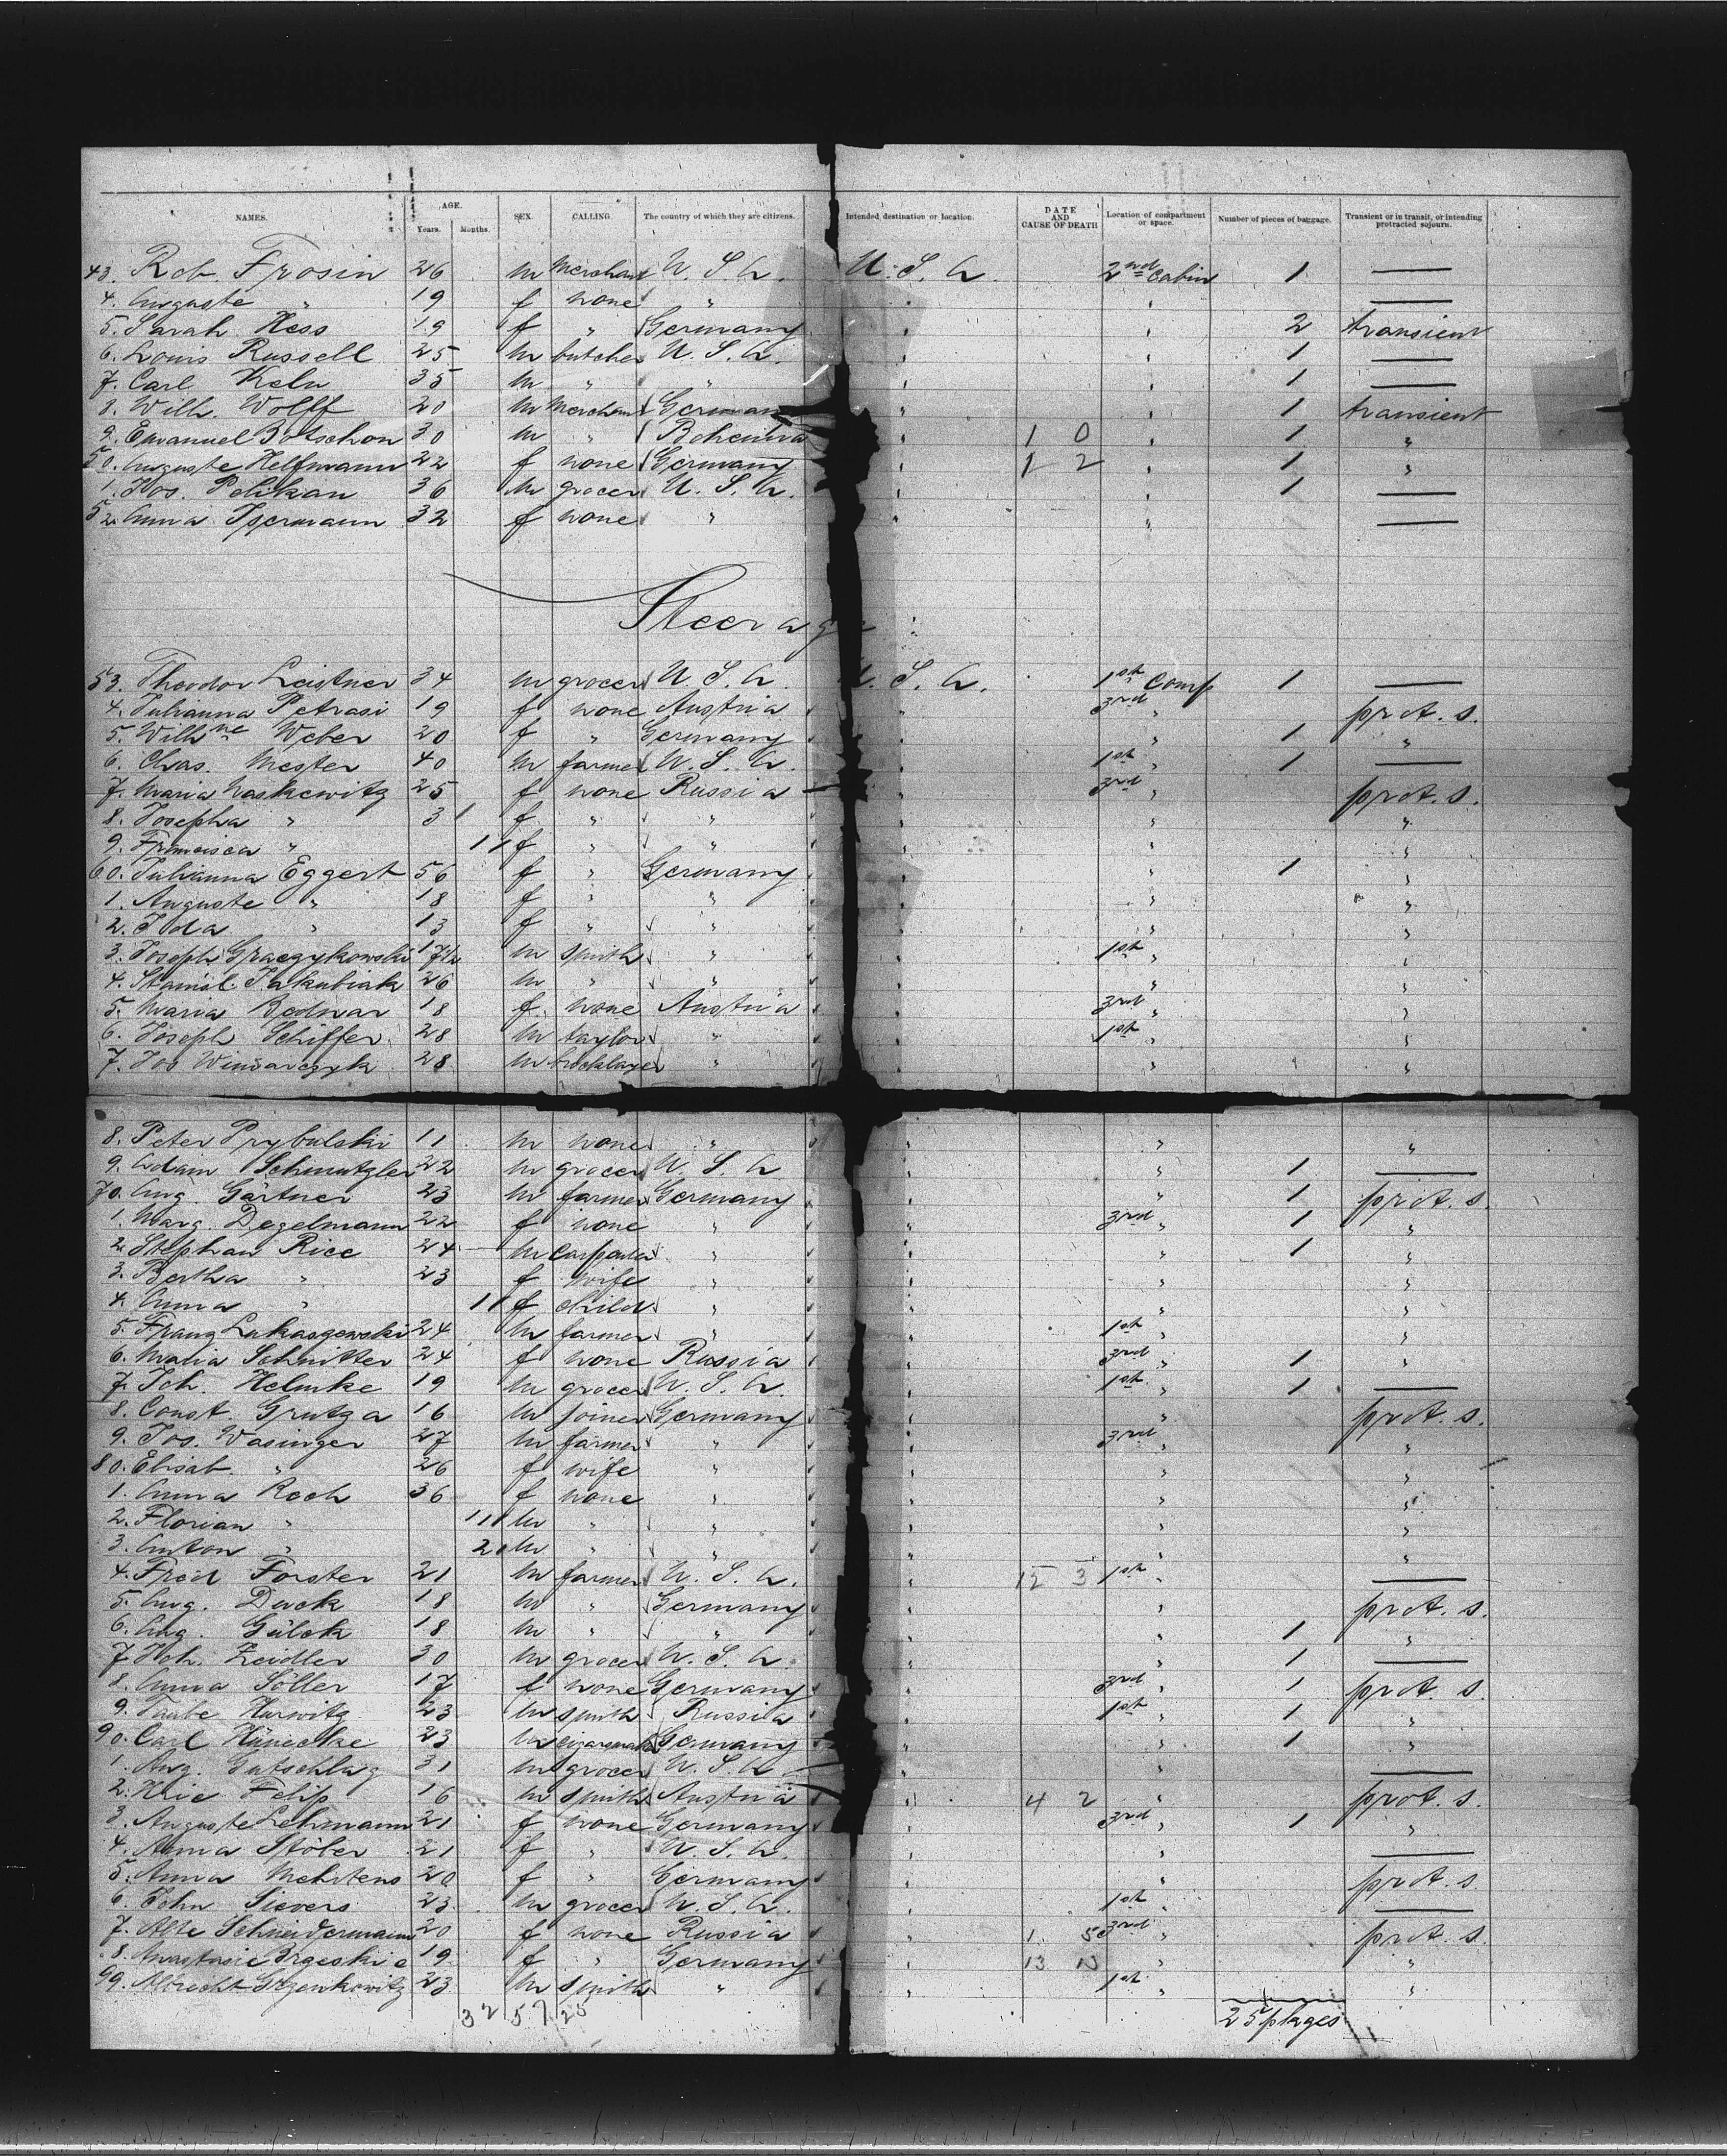 NAMES. AGE. SEX. CALLING. The country of which they are citizens. Intended destination or location. DATE AND CAUSE OF DEATH Location of compartment or space. Number of pieces of baggage. Transient or in transit, or intending protracted sojourn.
Years. Months.
43. Rob. Frosin 26 m Merchant U. S. A. U. S. A. 2nd Cabin 1 —
4. Auguste " 19 f none " " " —
5. Sarah Hess 19 f " Germany " " 2 transient
6. Louis Russell 25 m butcher U. S. A. " " 1 —
7. Carl Keln 35 m " " " " 1 —
8. Wilh. Wolff 20 m Merchant Germany " " 1 transient
9. Emanuel Botschon 30 m " Bohemia " 1 0 " 1 "
50. Auguste Helfmann 22 f none Germany " 1 2 " 1 "
1. Jos. Pelikan 36 m grocer U. S. A. " " 1 —
52. Anna Isermann 32 f none " " " —
Steerage
53. Theodor Leistner 34 m grocer U. S. A. U. S. A. 1st Comp 1 —
4. Julianna Petrasi 19 f none Austria " 3rd " prot. s.
5. Wilhne Weber 20 f " Germany " " 1 "
6. Chas. Mester 40 m farmer U. S. A. " 1st " 1 —
7. Maria Waskewitz 25 f none Russia " 3rd " prot. s.
8. Josepha " 3 f " " " " "
9. Francisca " 11 f " " " " "
60. Julianna Eggert 56 f " Germany " " 1 "
1. Auguste " 18 f " " " " "
2. Ida " 13 f " " " " "
3. Joseph Graczykowski 17 1/2 m smith " " 1st " "
4. Stanisl. Jakubiak 26 m " " " " "
5. Maria Bednar 18 f. none Austria " 3rd " "
6. Joseph Schiffer 28 m taylor " " 1st " "
7. Jos Winiarczyk 28 m bricklayer " " " "
8. Peter Prybulski 11 m none " " " "
9. Adam Schmutzler 22 m grocer U. S. A " " 1 —
70. Aug. Gärtner 23 m farmer Germany " " 1 prot. s.
1. Marg. Degelmann 22 f none " " 3rd " 1 "
2. Stephan Rice 24 m Carpenter " " " 1 "
3. Bertha " 23 f wife " " " "
4. Anna " 11 f child " " " "
5. Franz Lukaszewski 24 m farmer " " 1st " "
6. Maria Schnitter 24 f none Russia " 3rd " 1 "
7. Joh. Helmke 19 m grocer U. S. A. " 1st " 1 —
8. Const. Grutza 16 m joiner Germany " " prot. s.
9. Jos. Wasinger 27 m farmer " " 3rd "
80. Elisab. " 26 f wife " " " "
1. Anna Koch 36 f none " " " "
2. Florian " 11 m " " " " "
3. Anton " 2 m " " " " "
4. Fred Forster 21 m farmer U. S. A. " 12 3 1st " —
5. Aug. Duck 18 m " Germany " " prot. s.
6. Aug. Gülck 18 m " " " " 1 "
7. Hch. Zeidler 30 m grocer U. S. A. " " 1 —
8. Anna Söller 17 f none Germany " 3rd " 1 prot. s.
9. Taube Hurwitz 23 m smith Russia " 1st " 1 "
90. Carl Hünecke 23 m cigarmaker Germany " " 1 "
1. Aug. Gutschlag 31 m grocer U. S. A. " " —
2. Felip 16 m smith Austria " 4 2 " prot. s.
3. Auguste Lehmann 21 f none Germany " 3rd " 1 "
4. Anna Stöber 21 f " U. S. A. " " —
5. Anna Mehrtens 20 f " Germany " " prot. s.
6. John Sievers 23 m grocer U. S. A. " 1st " —
7. Alte Schneidermann 20 f none Russia " 1 3rd " prot. s.
8. Anastasie Brzeskie 19 f " Germany " 13 " "
99. Albrecht Grzenkowitz 23 m smith " " 1st " "
32 57 25 25 plages